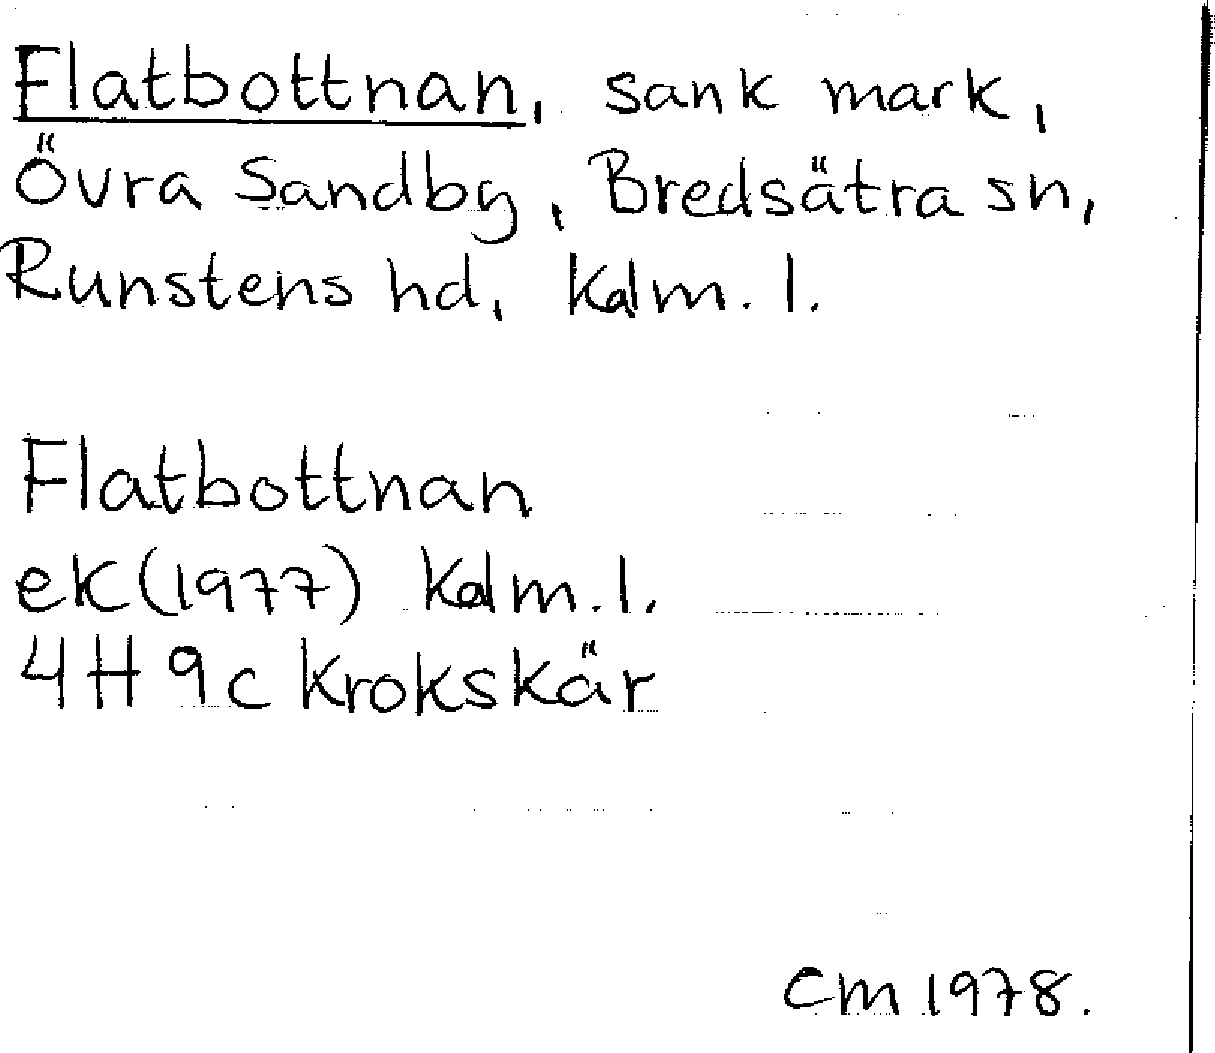 Flatbottnan, sank mark,
Övra Sandby, Bredsätra sn,
Runstens hd, Kalm. l.
Flatbottnan
ek (1977) Kalm. l.
4H 9c Krokskär
CM 1978.